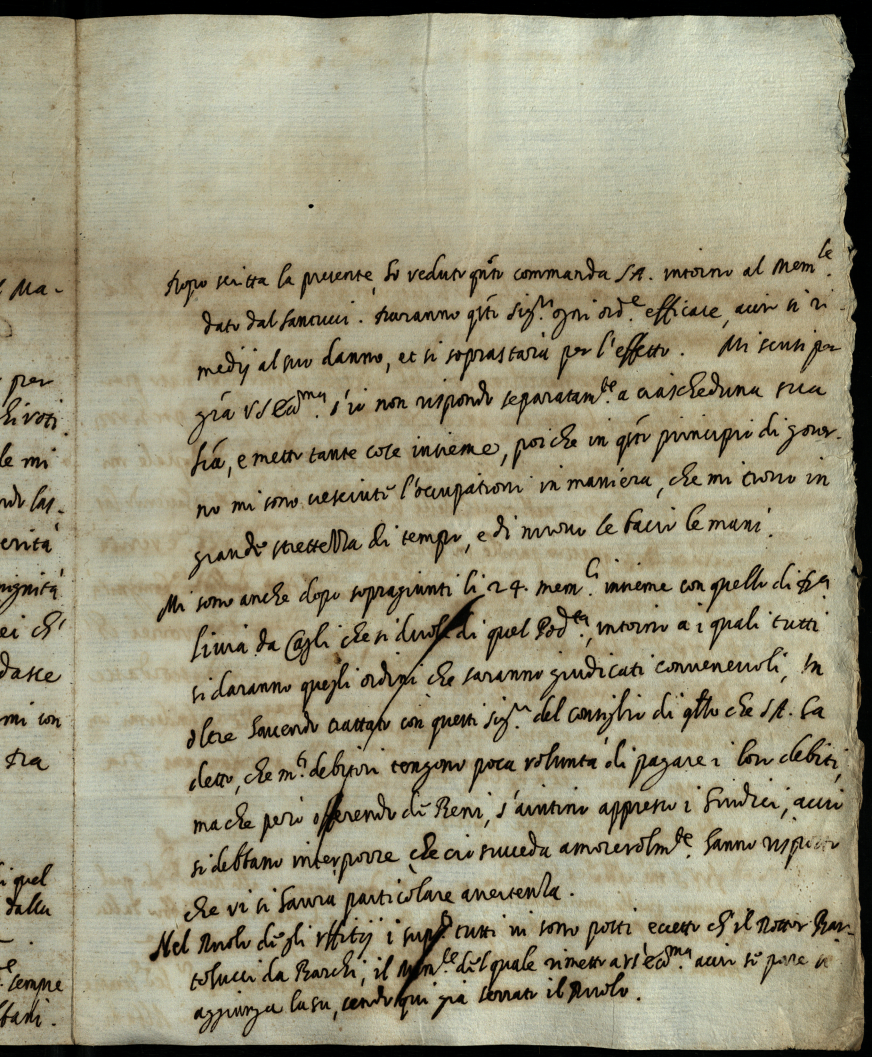 l Ma-
per
le mi
erità
ei ch'
dasse
mi con
tra
i quel
dalla
sempre
Dopo scritta la presente, ho veduto qnto commanda S.A. intorno al Mem.le
dato dal Santucci. Daranno qsti Sig.ri ogni ord.e efficace, acciò si ri-
medij al suo danno, et si soprastaria per l'effetto. Mi scusi per
gra V.S. Ecc.ma s'io non rispondo separatam.te a ciascheduna sua
l.ra, e metto tante cose insieme, poiche in qsti principij di gover-
no mi sono cresciute l'occupationi in maniera, che mi trovo in
grande strettezza di tempo, e di nuovo le bacio le mani.
Mi sono anche dopo sopragiunti li 24. mem.li insieme con quello di
Livia da Cagli che si duole di quel Pod.tà, intorno a i quali tutti
si daranno quegli ordini che saranno giudicati convenevoli, In
oltre havendo trattato con questi Sig.ri del consiglio di qllo che S.A. ha
detto, che m.ti debitori tengono poca voluntà di pagare i loro debiti,
ma che però offerendo de Beni, s'aiutino appresso i Giudici, acciò
si debbano interporre che ciò succeda amorevolm.te hanno risposto
che vi si havrà particolare avertenza.
Nel Ruolo de gli uffitij i sup.ti tutti vi sono posti eccetto ch'il Dottor Bar-
tolucci da Barchi, il Mem.le del quale rimetto a V.S. Ecc.ma acciò se pare si
aggiunga lasu, sendo qui già serrato il Ruolo.